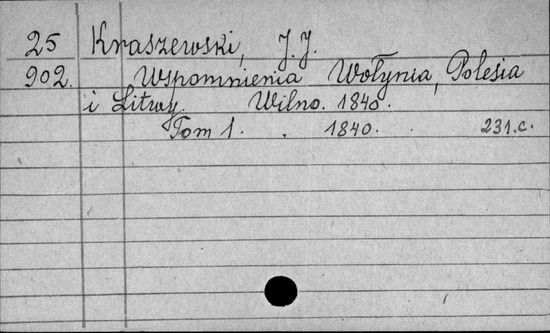 25 Kraszewski, J.J.
902. Wspomnienia Wołynia, Polesia
i Litwy. Wilno. 1840.
Tom 1. . 1840. . 231.c.